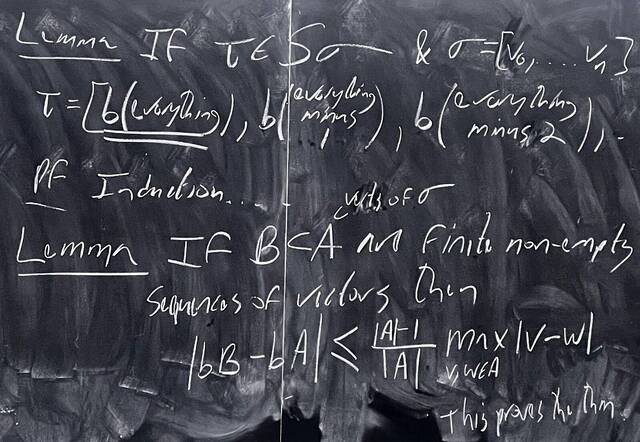 Lemma IF τ ∈ Sσ & σ = [v₀, .... vₙ]
τ = [b(everything), b(everything minus 1), b(everything minus 2), ..
PF Induction....
vrts of σ
Lemma IF B ⊂ A are finite non-empty
sequences of vectors then
|bB - bA| ≤ |A|-1 / |A| max |v-w|
v,w∈A
This proves the thm.